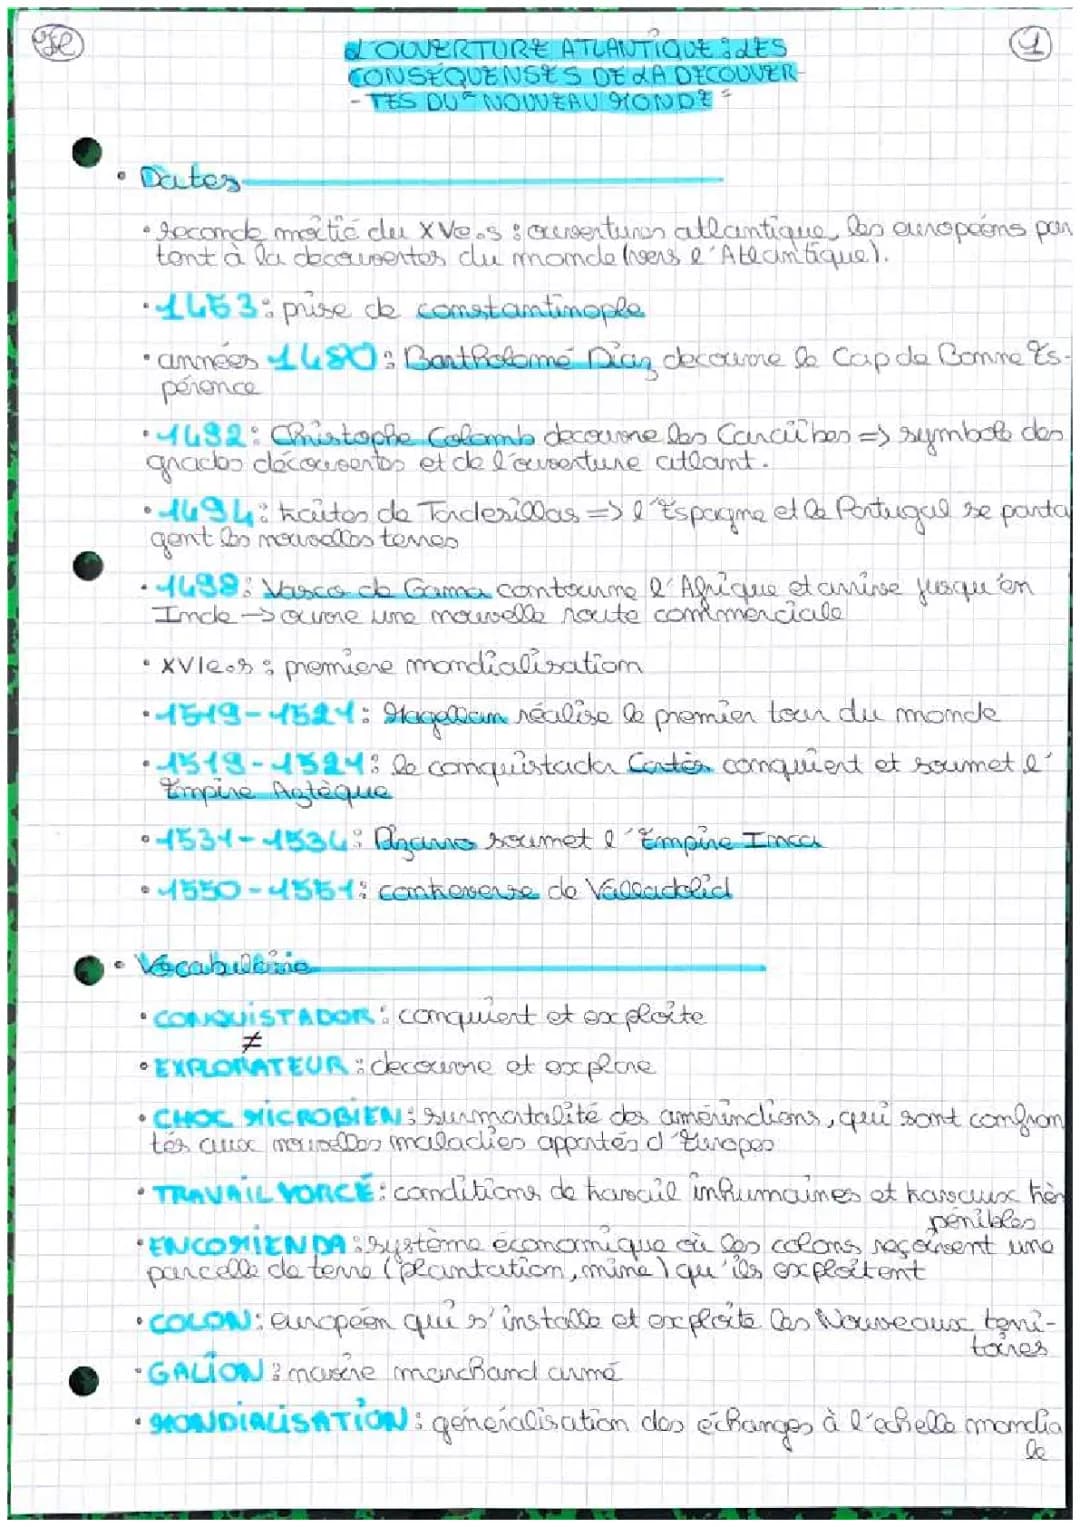 L'OUVERTURE ATLANTIQUE : LES
CONSÉQUENSES DE LA DECOUVER-
-TES DU "NOUVEAU MONDE"
1
• Dates
• seconde moitié du XVe.s : ouvertures atlantique, les européens par
tent à la decouvertes du monde (vers l'Atlantique).
• 1453 : prise de constantinople
• années 1480 : Bartholomé Diaz decouvre le Cap de Bonne Es-
pérence
• 1492 : Christophe Colomb decouvre les Caraïbes => symbole des
grades découvertes et de l'ouverture atlant.
• 1494 : traites de Torderillas => l'Espagne et le Portugal se parta
gent les nouvelles terres
• 1498 : Vasco de Gama contourne l'Afrique et arrive jusqu'en
Inde -> ouvre une nouvelle route commerciale
• XVIe.s : premiere mondialisation
• 1519-1521 : Magellan réalise le premier tour du monde
• 1519-1521 : le conquistador Cortés conquiert et soumet l'
Empire Aztèque
• 1531-1534 : Pizarro soumet l'Empire Inca
• 1550-1551 : controverse de Valladolid
• Vocabulaire
• CONQUISTADOR : conquiert et exploite
≠
• EXPLORATEUR : decouvre et explore
• CHOC MICROBIEN : surmortalité des amérindiens, qui sont confron
tés aux nouvelles maladies apportés d'Europes
• TRAVAIL FORCÉ : conditions de travail inhumaines et travaux très
pénibles
• ENCOMIENDA : système économique où les colons reçoivent une
parcelle de terre (plantation, mine) qu'ils exploitent
• COLON : européen qui s'installe et exploite les Nouveaux terri-
toires
• GALION : navire marchand armé
• MONDIALISATION : généralisation des échanges à l'echelle mondia
le